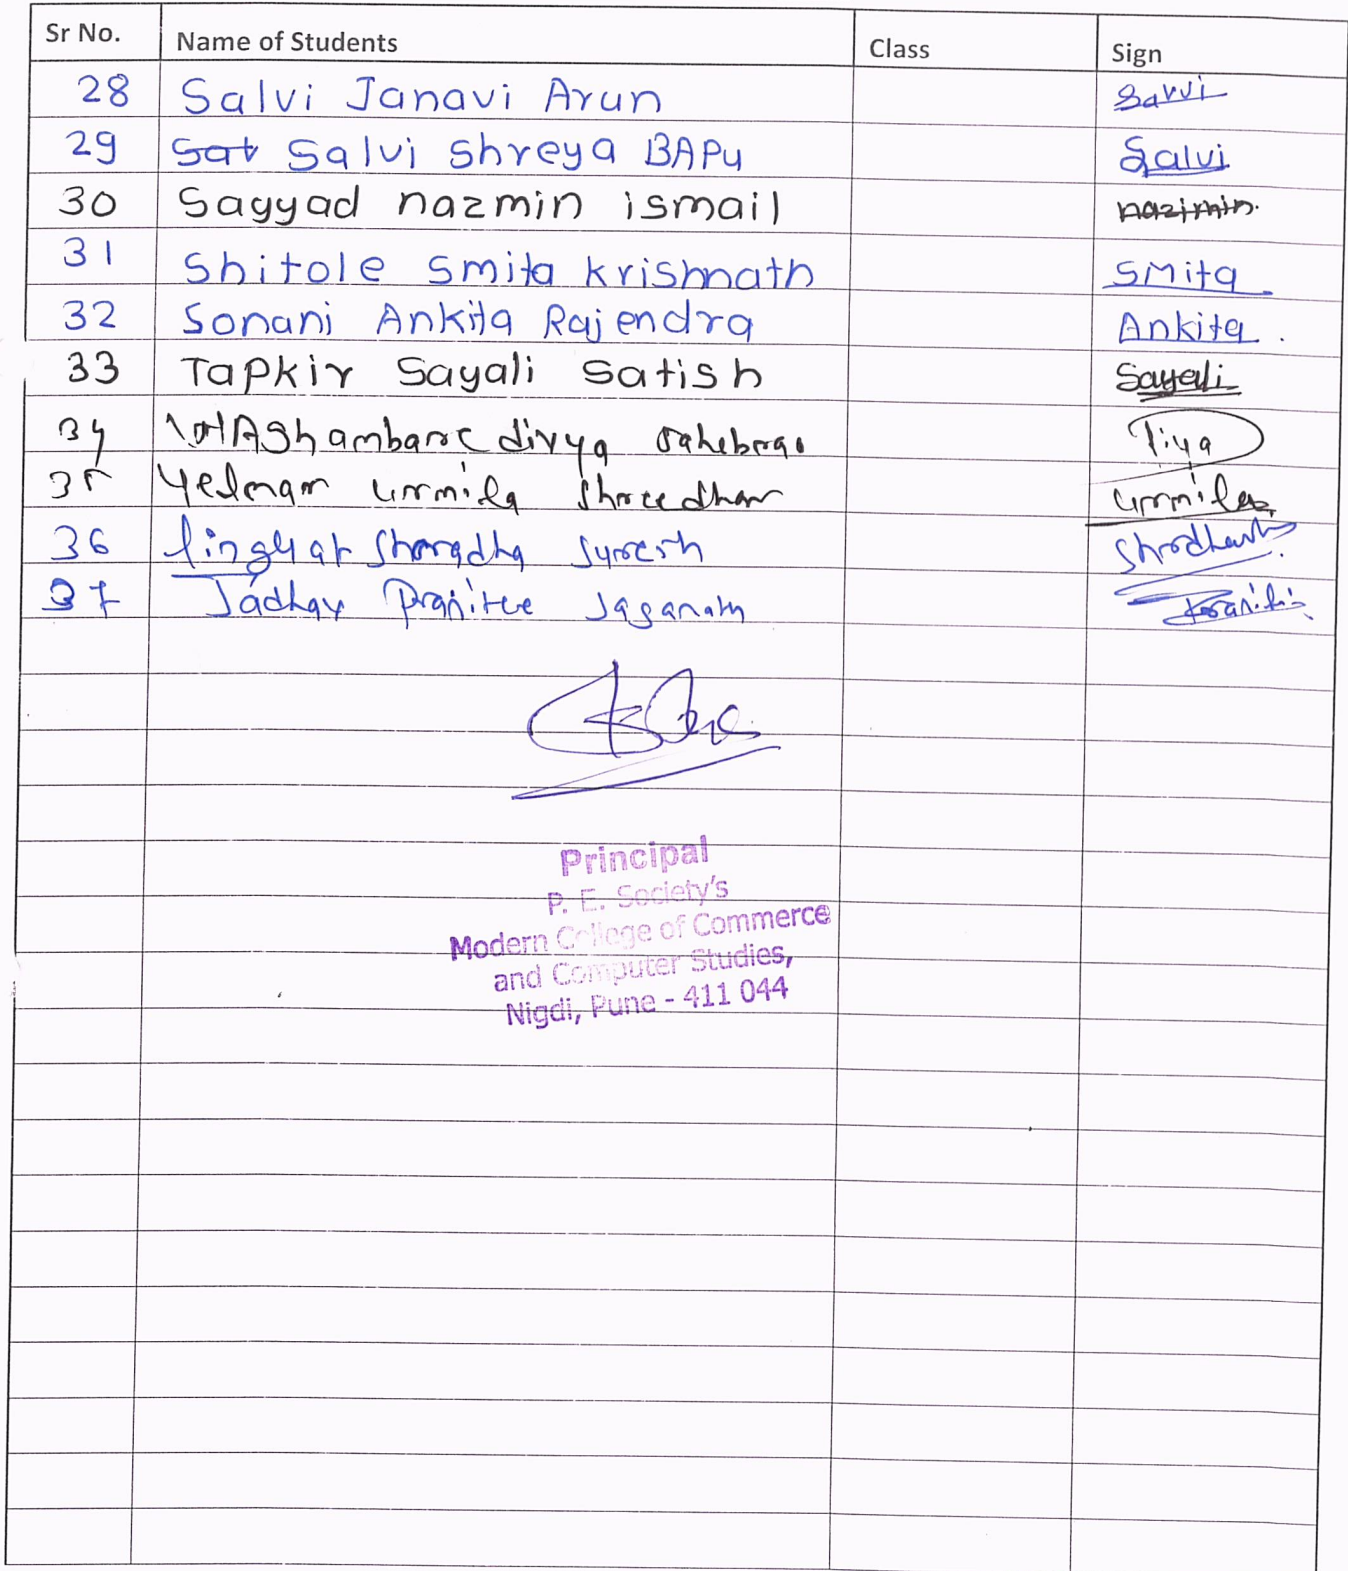 Sr No. Name of Students Class Sign
28 Salvi Janavi Arun Salvi
29 Sat Salvi Shreya BAPu Salvi
30 Sayyad nazmin ismail nazimin.
31 Shitole Smita Krishnath Smita
32 Sonani Ankita Rajendra Ankita.
33 Tapkir Sayali Satish Sayali
34 WAghambare divya Sahebrao
35 Yelmar urmila Shreedhar urmila
36 Shradha Suresh
37 Jadhav Pranitee Jaganath
Principal
P. E. Society's
Modern College of Commerce
and Computer Studies,
Nigdi, Pune - 411 044